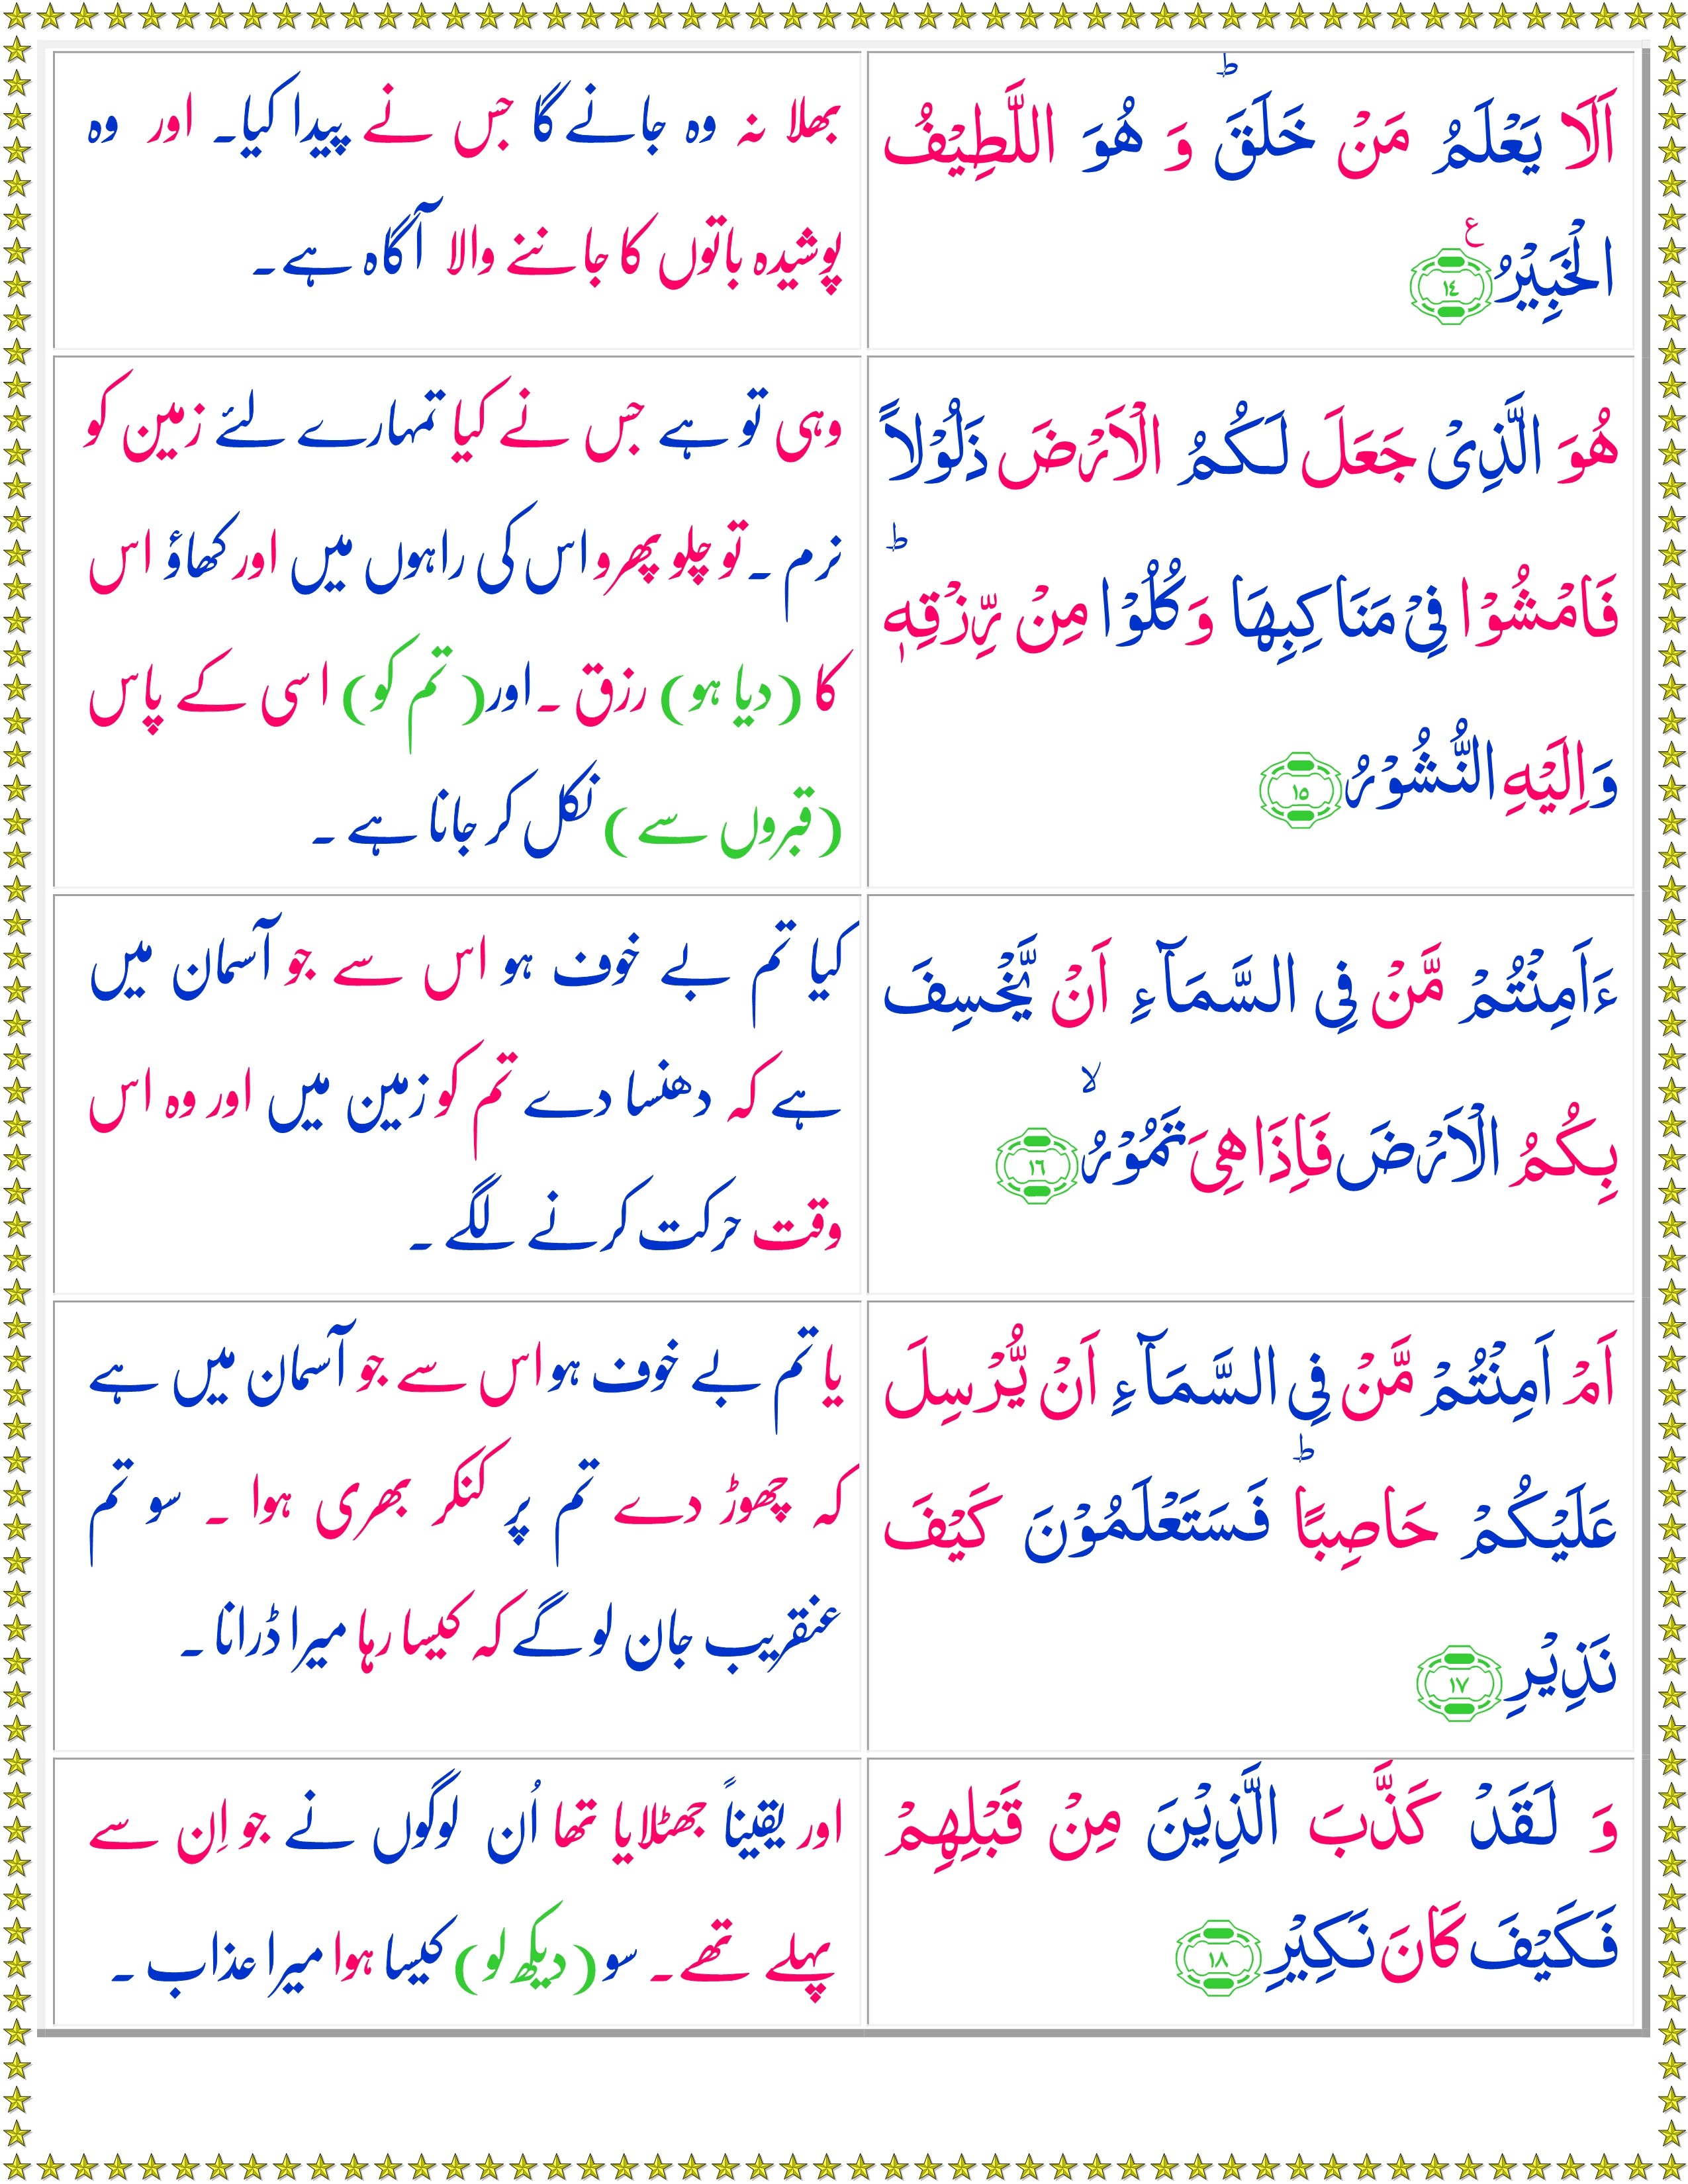 اَلَا يَعْلَمُ مَنْ خَلَقَ ؕ وَ هُوَ اللَّطِيْفُ
الْخَبِيْرُ ع ١٤
بھلا نہ وہ جانے گا جس نے پیدا کیا۔ اور وہ
پوشیدہ باتوں کا جاننے والا آگاہ ہے۔
هُوَ الَّذِىْ جَعَلَ لَـكُمُ الْاَرْضَ ذَلُوْلًا
فَامْشُوْا فِىْ مَنَاكِبِهَا وَكُلُوْا مِنْ رِّزْقِهٖ ؕ
وَاِلَيْهِ النُّشُوْرُ ١٥
وہی تو ہے جس نے کیا تمہارے لئے زمین کو
نرم ۔ تو چلو پھرو اس کی راہوں میں اور کھاؤ اس
کا (دیا ہو) رزق ۔ اور (تم کو) اسی کے پاس
(قبروں سے) نکل کر جانا ہے ۔
ءَاَمِنْتُمْ مَّنْ فِى السَّمَآءِ اَنْ يَّخْسِفَ
بِكُمُ الْاَرْضَ فَاِذَا هِىَ تَمُوْرُ ۙ ١٦
کیا تم بے خوف ہو اس سے جو آسمان میں
ہے کہ دھنسا دے تم کو زمین میں اور وہ اس
وقت حرکت کرنے لگے ۔
اَمْ اَمِنْتُمْ مَّنْ فِى السَّمَآءِ اَنْ يُّرْسِلَ
عَلَيْكُمْ حَاصِبًا ؕ فَسَتَعْلَمُوْنَ كَيْفَ
نَذِيْرِ ١٧
یا تم بے خوف ہو اس سے جو آسمان میں ہے
کہ چھوڑ دے تم پر کنکر بھری ہوا ۔ سو تم
عنقریب جان لو گے کہ کیسا رہا میرا ڈرانا ۔
وَ لَقَدْ كَذَّبَ الَّذِيْنَ مِنْ قَبْلِهِمْ
فَكَيْفَ كَانَ نَكِيْرِ ١٨
اور یقیناً جھٹلایا تھا اُن لوگوں نے جو اِن سے
پہلے تھے ۔ سو (دیکھ لو) کیسا ہوا میرا عذاب ۔